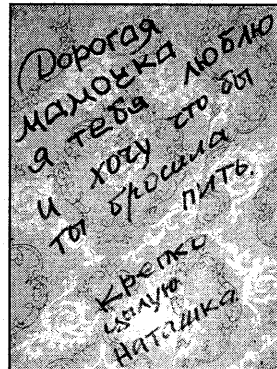 Дорогая
мамочка
я тебя люблю
и хочу сто бы
ты бросила
пить.
Крепко
цылую
Наташка